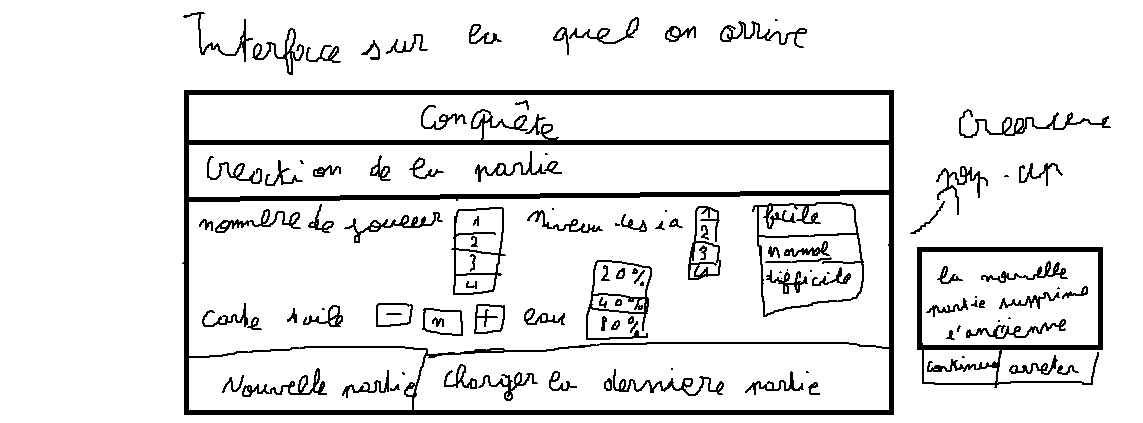 Interface sur la quel on arrive
Conquête
Creation de la partie
nombre de joueur
1
2
3
4
Niveau des ia
1
2
3
4
facile
normal
difficile
Carte taile
-
n
+
eau
20%
40%
80%
Nouvelle partie
Charger la derniere partie
Creer une
pop-up
la nouvelle
partie supprime
l'ancienne
continuer
arreter